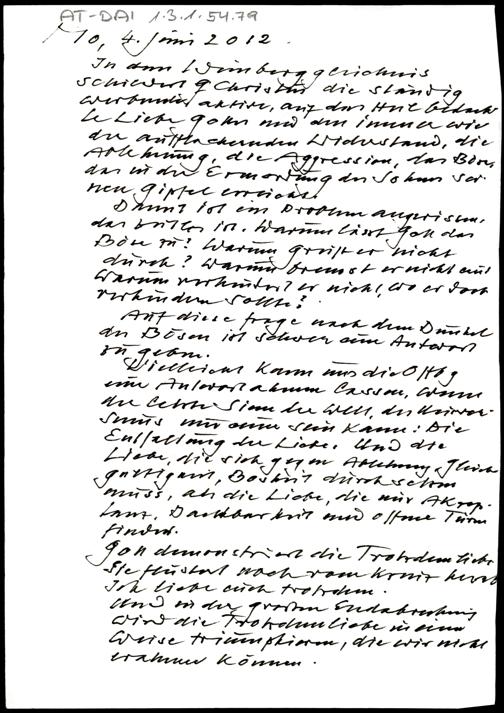 AT-DAI 1.3.1-54.79
Mo, 4. Juni 2012.
In dem Weinberggleichnis
schildert Christus die ständig
werbende, aktive, auf das Heil bedach-
te Liebe Gottes und den immer wie
der aufflackernden Widerstand, die
Ablehnung, die Aggression, das Böse,
das in der Ermordung des Sohnes sei-
nen Gipfel erreicht.
Damit ist ein Problem angerissen,
das zeitlos ist. Warum lässt Gott das
Böse zu? Warum greift er nicht
durch? Warum bremst er nicht ein?
Warum verhindert er nicht, wo er doch
verhindern sollte?
Auf diese Frage nach dem Dunkel
des Bösen ist schwer eine Antwort
zu geben.
Vielleicht kann uns die Offbg
eine Antwort ahnen lassen, wenn
der letzte Sinn der Welt, des Univer-
sums nur eine sein kann: Die
Entfaltung der Liebe. Und die
Liebe, die sich gegen Ablehnung, Gleich
gültigkeit, Bosheit durchsetzen
muss, als die Liebe, die nur Akzep-
tanz, Dankbarkeit und offene Türen
findet.
Gott demonstriert die Trotzdemliebe
Sie flüstert noch vom Kreuz herab
Ich liebe euch trotzdem.
Und in der großen Endabrechnung
wird die Trotzdemliebe in einer
Weise triumphieren, die wir nicht
erahnen können.